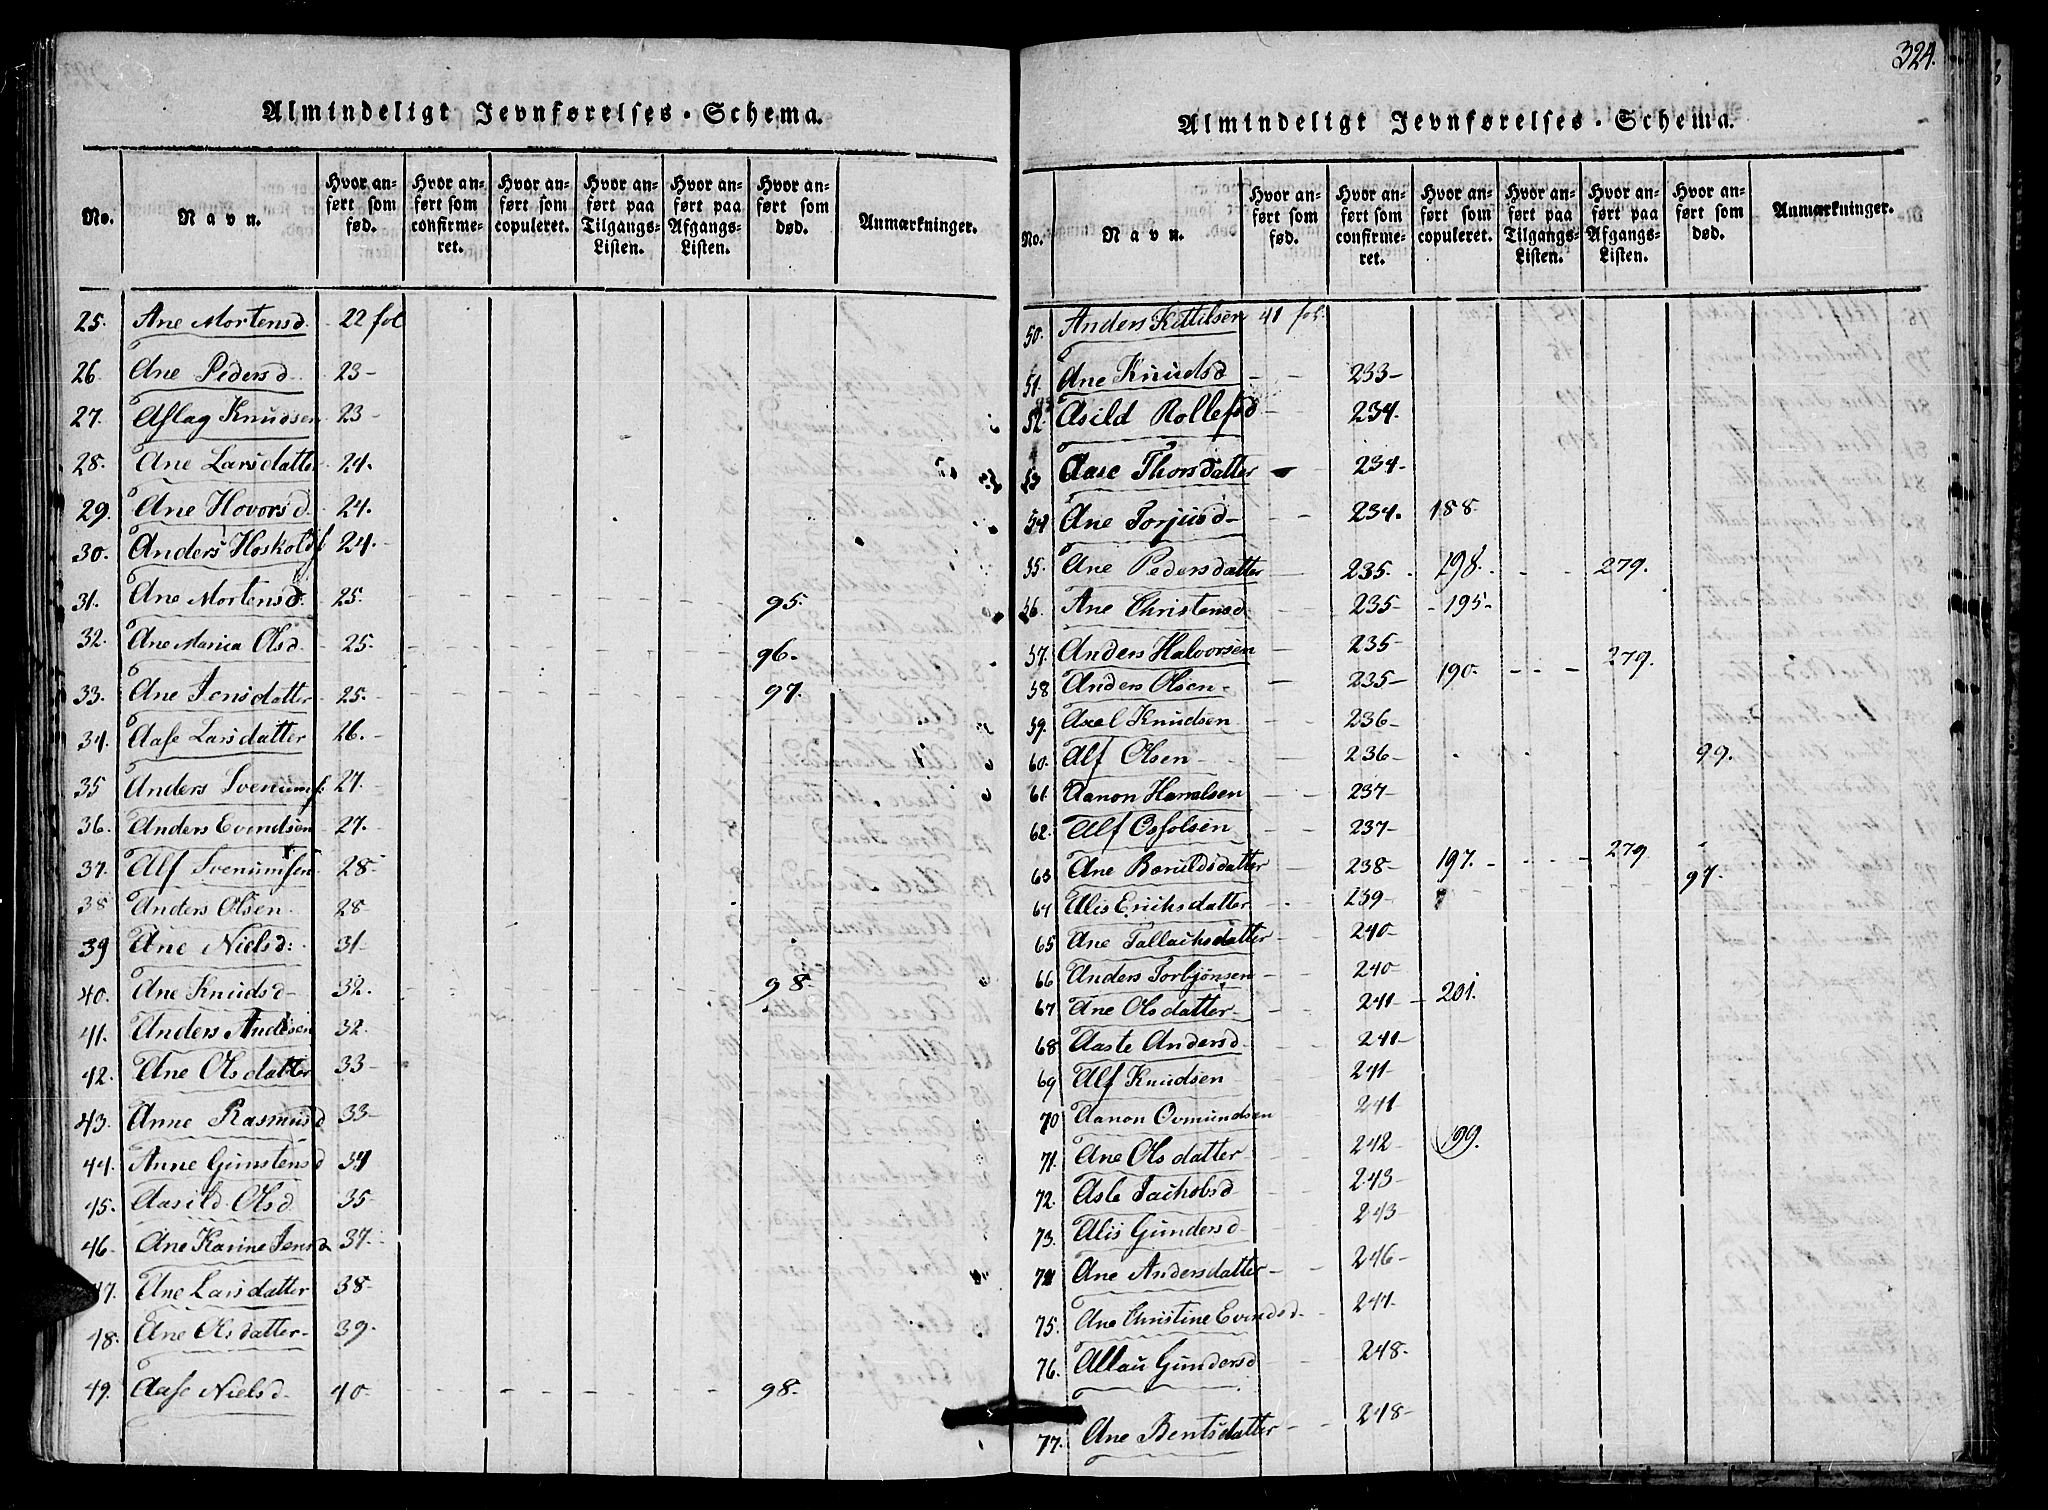 324.
Almindeligt Jevnførelses-Schema.
No. Navn. Hvor anført som fød. Hvor anført som confirmeret. Hvor anført som copuleret. Hvor anført paa Tilgangs-Listen. Hvor anført paa Afgangs-Listen. Hvor anført som død. Anmærkninger.
25. Ane Mortensd. 22 fol
26. Ane Pedersd 23-
27. Aslag Knudsen 23
28. Ane Larsdatter 24.
29. Ane Hovorsd 24.
30. Anders Hoskolds 24.
31. Ane Mortensd. 25. 95.
32. Ane Maria Olsd. 25. 96.
33. Ane Jensdatter 25. 97.
34. Aase Larsdatter 26.
35 Anders Svenums. 27.
36. Anders Evendsen 27.
37. Alf Svenumsen 28-
38 Anders Olsen 28
39 Ane Nielsd: 31
40. Ane Knudsd 32. 98.
41. Anders Andersen 32.
42. Ane Olsdatter 33
43. Anne Rasmusd 33
44. Anne Gunstensd 34
45. Aasild Olsd 35
46. Ane Karine Jensd 37.
47. Ane Larsdatter 38-
48. Ane Olsdatter 39.
49. Aase Nielsd 40 98.
Almindeligt Jevnførelses-Schema.
No. Navn. Hvor anført som fød. Hvor anført som confirmeret. Hvor anført som copuleret. Hvor anført paa Tilgangs-Listen. Hvor anført paa Afgangs-Listen. Hvor anført som død. Anmærkninger.
50. Anders Kittilsen 41 fol.
51. Ane Knudsd 233-
52. Asild Rollefsd 234.
53 Aase Thorsdatter 234-
54 Ane Torjusd 234. 188
55. Ane Pedersdatter 235. 198. 279.
56. Ane Christensd 235- 195-
57. Anders Halvorsen 235-
58 Anders Olsen 235- 190. 279.
59. Axel Knudsen 236-
60. Alf Olsen 236- 99.
61. Aanon Haralsen 237-
62. Alf Osfolsen 237-
63 Ane Baruldsdatter 238- 197. 279 97.
64 Alis Erichsdatter 239-
65 Ane Tallachsdatter 240-
66 Anders Torbjønsen 240
67 Ane Olsdatter 241- 201.
68 Aaste Andersd 241-
69 Alf Knudsen 241-
70 Aanon Ovmundsen 241
71. Ane Olsdatter 242- 199.
72. Asle Jachobsd 243-
73. Alis Gundersd 243
74 Ane Andersdatter 246-
75. Ane Christine Evendsd 247-
76. Allau Gundersd 248-
77. Ane Bentsdatter 248-